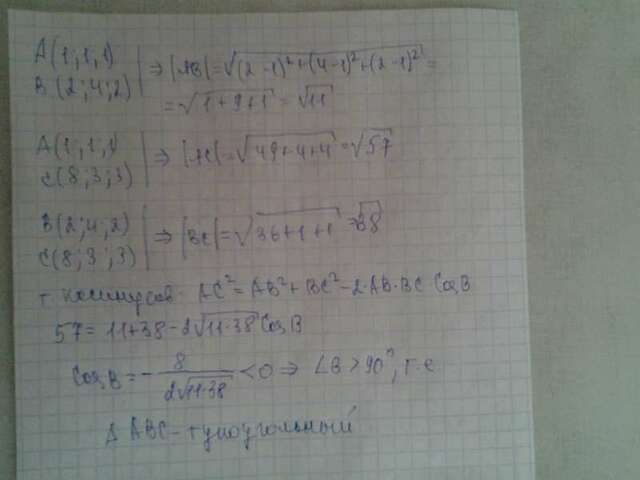 A(1;1,1)
B(2;4;2) ⇒ |AB|=√(2-1)²+(4-1)²+(2-1)² =
= √1+9+1 = √11
A(1;1,1)
C(8;3;3) ⇒ |AC|=√49+4+4 = √57
B(2;4;2)
C(8;3;3) ⇒ |BC|=√36+1+1 = √38
т. косинусов: AC²=AB²+BC²-2·AB·BC CosB
57=11+38-2√11·38 CosB
CosB = - 8/2√11·38 < 0 ⇒ ∠B > 90°, т.е
Δ ABC - тупоугольный